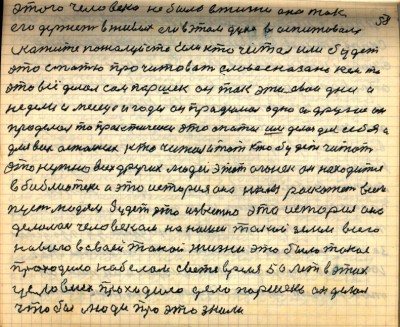 59
этого человека не было в жизни она так
его держет в живых ей в этом духе воспитовали
скажите пожалуйста если кто читал или будет
это статью прочитовать слова сказано кем то
это всё делал сам паришек он так эти свои дни и
недели и месецо и годы он продумал одно а другие он
проделал то практически это опаты для себя а
для всех остальных кто читал и тот кто будет читать
это нужно всех других людей этот он находится
в библиотеке а это история она расскажет всем
пусть людям будет это известно эта история она
делимая человеком на нашей земли всего
навсего в своей такой жизни это было такое
проходило на белом свете время 50 лет в этих
человеках проходило дело паришек он делал
чтобы люди про это знали